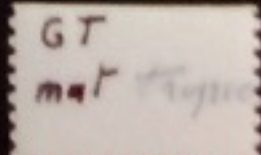 GT
mat